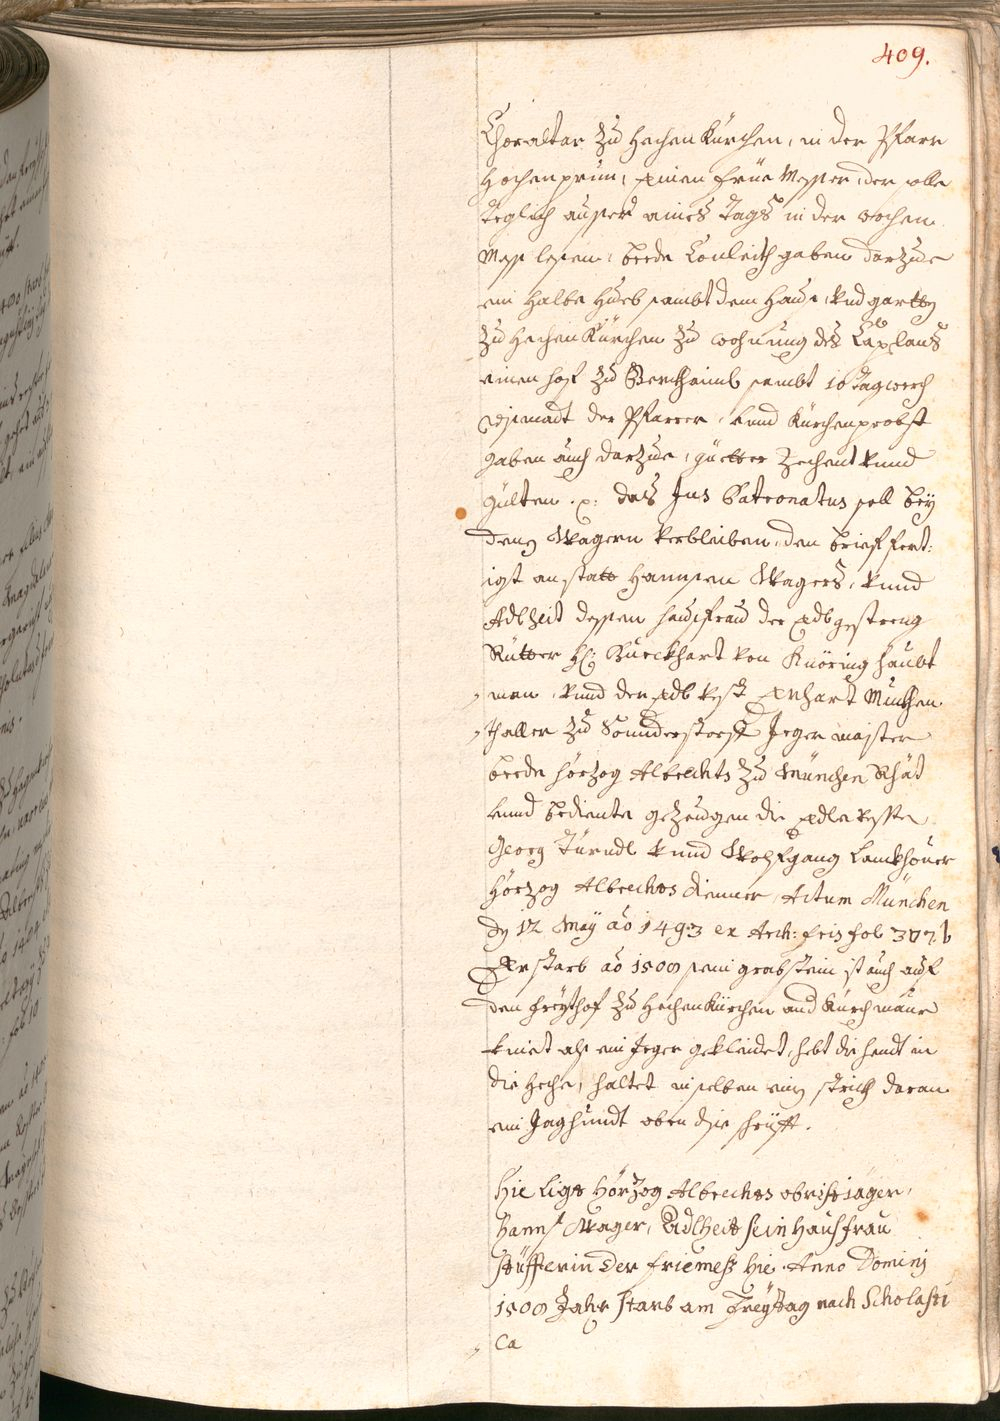 409.
Choraltar zu Hechenkürchen, in der Pfarr
Hechenprun, einen Früe Messer, der solle
teglich ausser aines Tags in der wochen
Mess lesen, bede Conleith gaben darzue
ein halbe Hueb sambt dem Haus, vnd gartten
zu Hechenkürchen zu wohnung des Caplans
einen hof zu Perchaimb sambt 10 Tagwerch
Wismadt der Pfarrer, vnnd Kürchenprobst
gaben auch darzue, güetter Zechent vnnd
gülten .p: das Jus Patronatus soll bey
denen Wagern verbleiben, den brief fert:
igt anstatt Hannsen Wagers, vnnd
Adlheit dessen hausfrau der Edlgestreng
Ritter H: Burckhart von Knöring haubt
man, vnnd der Edl vest Erhart München
thaller zu Sounderstorff Jegermaister
bede Hörzog Albrechts zu München Rhät
vnnd bediente gezeugen die Edle veste
Georg Türndl vnnd Wolfgang Lamkhouer
Hörzog Albrechts dienner, Actum München
dy 12 May aõ 1493 ex Arch: Fris fol 377 b
Er starb aõ 1500 sein grabstein ist auch auf
den Freythof zu Hechenkürchen and Kürchmaur
kniet als ein Jeger gekleidet, hebt die hendt in
die Heche, haltet in selben ein strickh daran
ein Jaghundt oben dise schrifft.
Hie ligt Hörzog Albrechts obristjäger,
Hanns Wager, Adlheit sein Hausfrau
stüffterin der Friemess hie. Anno Dominj
1500 Jahr starb am Freyttag nach Scholasti
ca